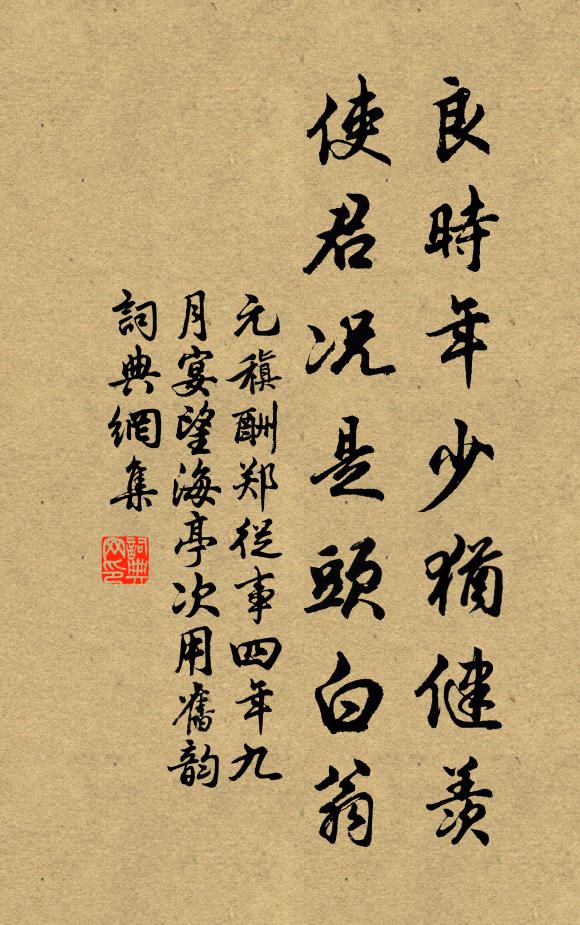 良時年少猶健羨
使君况是頭白翁
元稹酬郑從事四年九
月宴望海亭次用舊韵
詞典網集
詞典网印